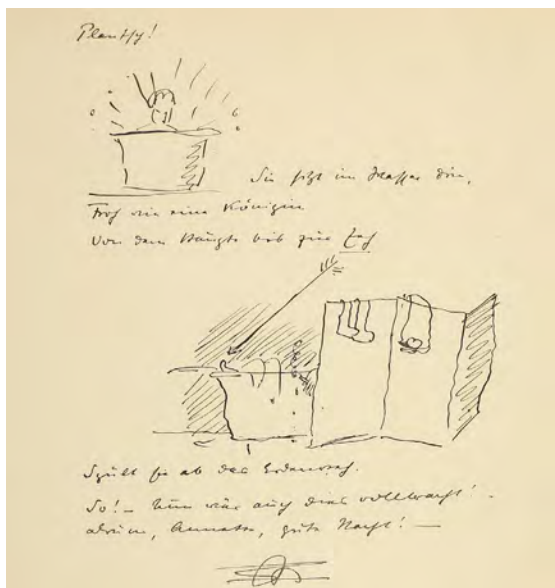 Plantsch!
Sie sitzt im Wasser drin,
Froh wie eine Königin
Von dem Haupte bis zur Zeh
Spült sie ab das Erdenweh.
So! – Nun wär auch dies vollbracht! –
gute Nacht! –